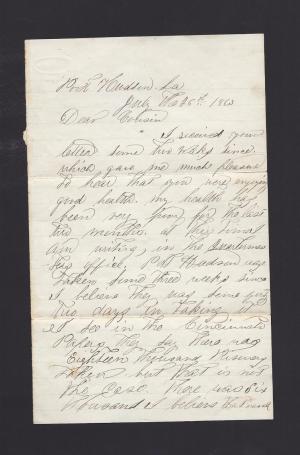 Port Hudson La
July The 26th 1863
Dear Cousin
I received your
letter some two weaks since
which gave me much pleasure
to hear that you were enjoying
good health. my health has
been very poor for the last
two months. at this time I
am writing in the
office. Port Hudson was
taken some three weeks since
I believe they was some forty
two days in taking it
I see in the Cincinnati
Papers they say there was
Eighteen thousand Prisoners
taken but that is not
the case. There was six
thousand I believe